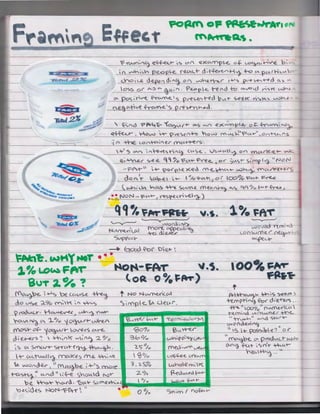 FORM OF PRESENTATION
MATTERS.
Framing Effect
Framing effect is an example of cognitive bias
in which people react differently to a particular
choice depending on whether it is presented as a
loss or as a gain. People tend to avoid risk when
a positive frame is presented but seek risks when
negative frame is presented.
I find FAGE Yogurt as an example of framing
effect. How it presents how much "Fat" contains
in the container matters.
It's an interesting case. Usually on market we
either see 99% Fat Free, or just simply "NON
-FAT". It perplexed me that why marketers
don't label it 1% Fat, or 100% Fat Free
(which has the same meaning as 99% Fat Free,
NON-FAT, respectively.)
FAGE
Total 2%
FAGE
Total 2%
FAGE
Total 0%
99% FAT FREE V.S. 1% FAT
Numerical
Support
more appealing
to dieter
would remind
consumer negative
aspect
→ Good For Diet!
FAGE. WHY NOT
1% LOW FAT
BUT 2%?
NON-FAT V.S. 100% FAT
(OR 0% FAT) FREE
Maybe it's because they
do use 2% milk in this
product. However, why not
having in 1% yogurt when
most of yogurt lovers are
dieters? I think using 2%
is a smart strategy though.
It actually makes me think
& wonder, "maybe it's more
tasty" and "life should not
be that hard. Eat something
besides NON-FAT!"
↑ No Numerical
Simple & Clear.
Butter Fat
Terminology
80%
Butter
36%
25%
18%
3.25%
Whole milk
2%
Reduced Fat
1%
Low Fat
0%
Skim / nonfat
Although this seems
tempting for dieters,
the "100%" numerical
remind consumer the
"truth" and start
wondering
"is it possible?" or
"maybe a product with
any fat isn't that
healthy..."